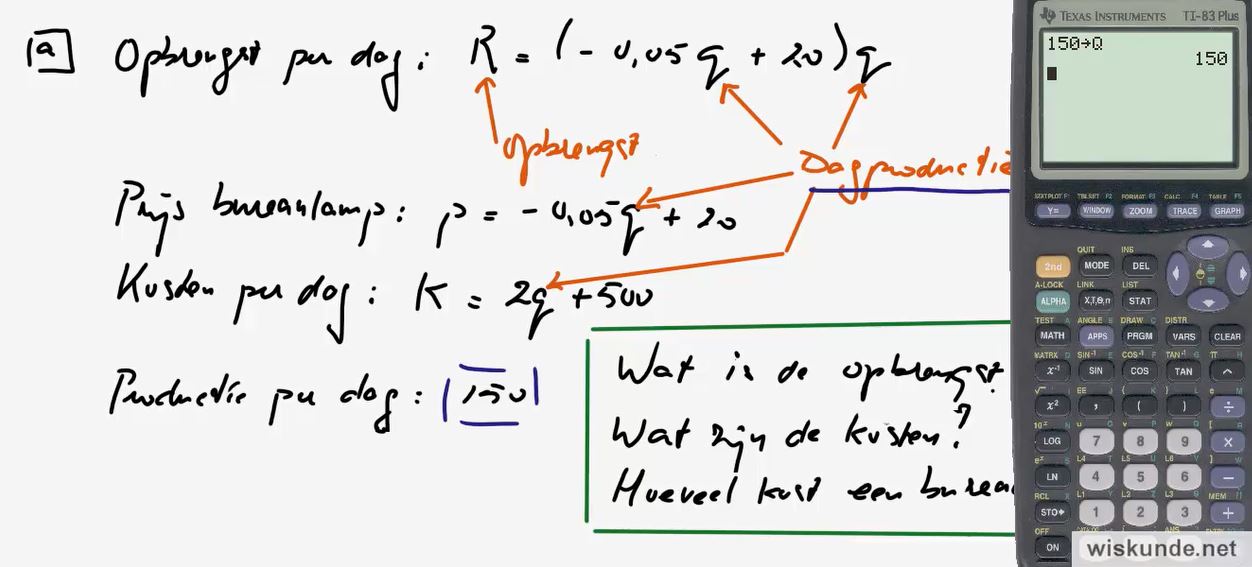 a Opbrengst per dag: R = (-0,05q + 20)q
opbrengst
Dagproductie
Prijs bureaulamp: p = -0,05q + 20
Kosten per dag: K = 2q + 500
Productie per dag: 150
Wat is de opbrengst?
Wat zijn de kosten?
Hoeveel kost een burea
TEXAS INSTRUMENTS TI-83 Plus
150→Q
150
STATPLOT F1 TBLSET F2 FORMAT F3 CALC F4 TABLE F5
Y= WINDOW ZOOM TRACE GRAPH
QUIT INS
2nd MODE DEL
A-LOCK LINK LIST
ALPHA X,T,θ,n STAT
TEST A ANGLE B DRAW C DISTR
MATH APPS PRGM VARS CLEAR
MATRX D SIN⁻¹ E COS⁻¹ F TAN⁻¹ G π H
x⁻¹ SIN COS TAN ^
x² , ( ) ÷
LOG 7 8 9 ×
LN 4 5 6 −
RCL X
STO→ 1 2 3 +
OFF
ON
wiskunde.net